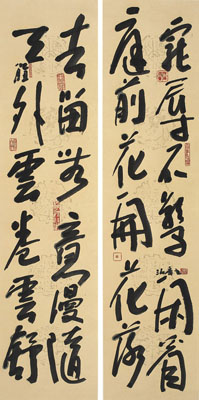 寵辱不驚閑看
庭前花開花落
去留無意漫隨
天外雲卷雲舒